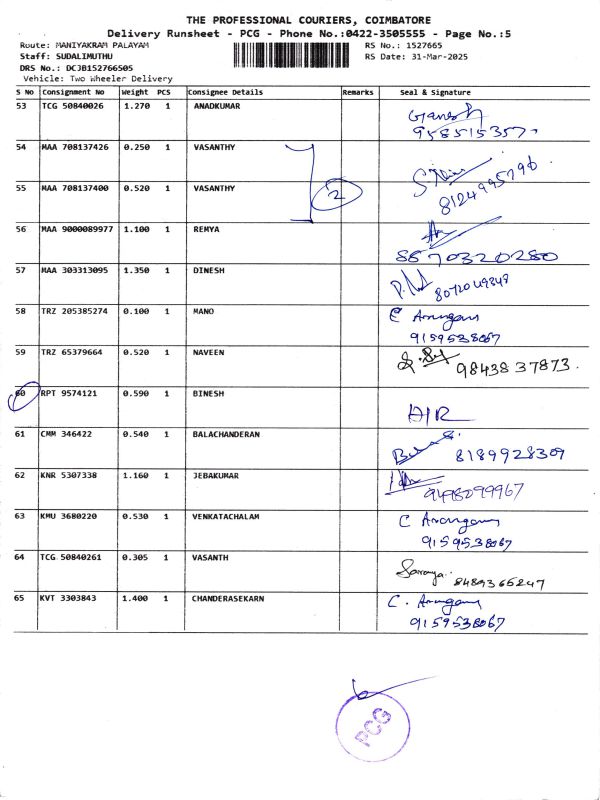 THE PROFESSIONAL COURIERS, COIMBATORE
Delivery Runsheet - PCG - Phone No.:0422-3505555 - Page No.:5
Route: MANIYAKRAM PALAYAM RS No.: 1527665
Staff: SUDALIMUTHU RS Date: 31-Mar-2025
DRS No.: DCJB152766505
Vehicle: Two Wheeler Delivery
S No Consignment No Weight PCS Consignee Details Remarks Seal & Signature
53 TCG 50840026 1.270 1 ANADKUMAR Ganesh
958515357
54 MAA 708137426 0.250 1 VASANTHY
55 MAA 708137400 0.520 1 VASANTHY 2 8124995796
56 MAA 9000089977 1.100 1 REMYA
8870320280
57 MAA 303313095 1.350 1 DINESH
8072049848
58 TRZ 205385274 0.100 1 MANO
9159538067
59 TRZ 65379664 0.520 1 NAVEEN 98438 37873.
60 RPT 9574121 0.590 1 BINESH
DIR
61 CMM 346422 0.540 1 BALACHANDERAN
8189928309
62 KNR 5307338 1.160 1 JEBAKUMAR
9498099967
63 KMU 3680220 0.530 1 VENKATACHALAM
9159538067
64 TCG 50840261 0.305 1 VASANTH
8489365247
65 KVT 3303843 1.400 1 CHANDERASEKARN
9159538067
PCG